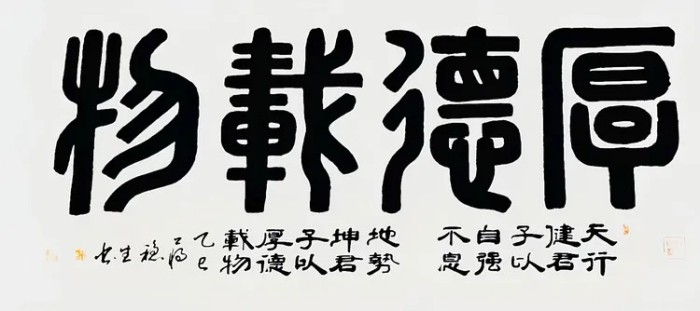 厚德載物
天行
健君
子以
自强
不息
地勢
坤君
子以
厚德
載物
乙巳